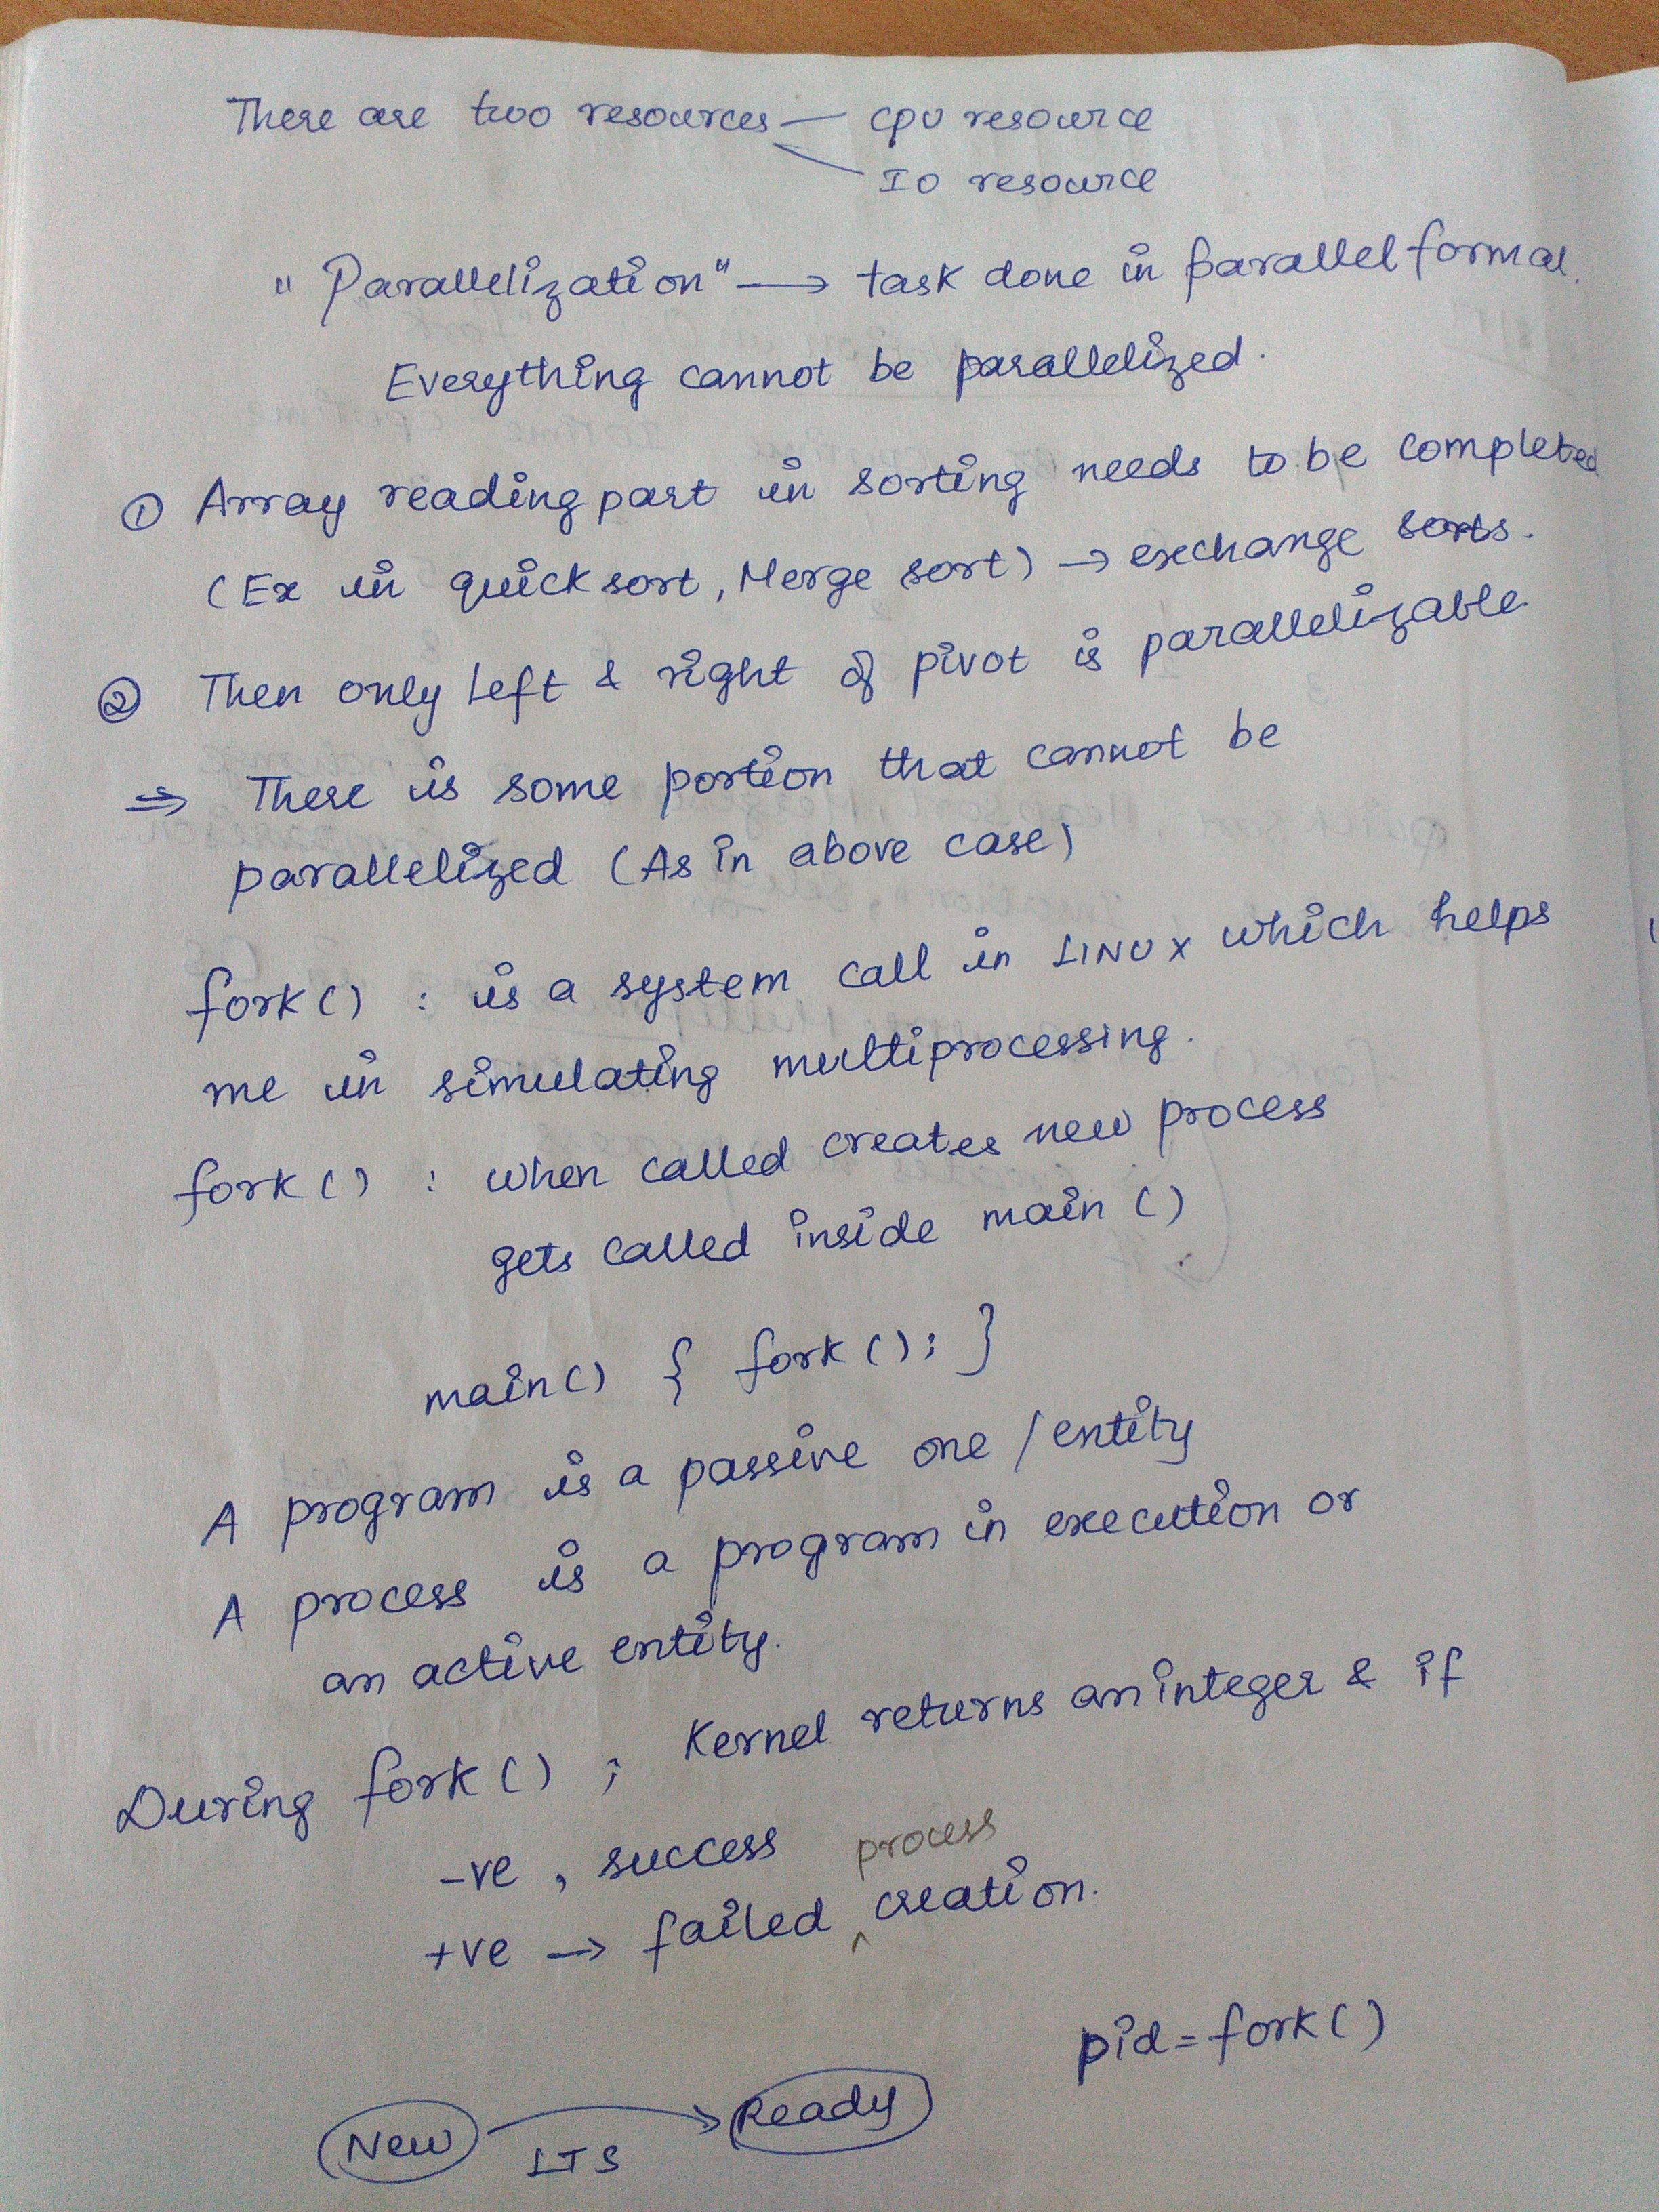 There are two resources — CPU resource
IO resource
"Parallelization" → task done in parallel format.
Everything cannot be parallelized.
① Array reading part in sorting needs to be completed
(Ex in quick sort, Merge sort) → exchange sorts.
② Then only left & right of pivot is parallelizable
⇒ There is some portion that cannot be
parallelized (As in above case)
fork() : is a system call in LINUX which helps
me in simulating multiprocessing.
fork() : when called creates new process
gets called inside main ()
main() { fork(); }
A program is a passive one / entity
A process is a program in execution or
an active entity.
During fork() ; Kernel returns an integer & if
-ve , success
process
+ve → failed ^ creation.
pid = fork()
New → Ready
LTS